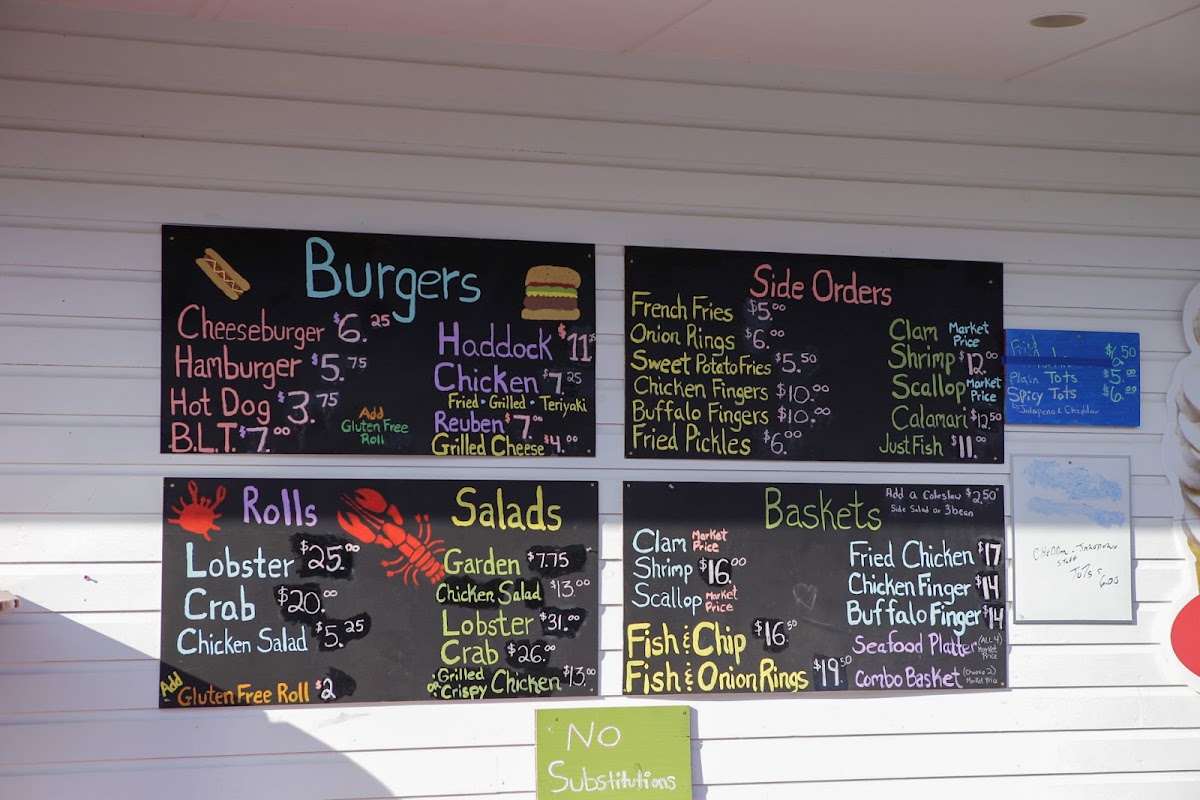 Burgers
Cheeseburger $6.25
Hamburger $5.75
Hot Dog $3.75
B.L.T. $7.00
Add
Gluten Free
Roll
Haddock $11
Chicken $7.25
Fried • Grilled • Teriyaki
Reuben $7.00
Grilled Cheese $4.00
Side Orders
French Fries $5.00
Onion Rings $6.00
Sweet Potato Fries $5.50
Chicken Fingers $10.00
Buffalo Fingers $10.00
Fried Pickles $6.00
Clam Market Price
Shrimp $12.00
Scallop Market Price
Calamari $12.50
Just Fish $11.00
$6.50
Plain Tots $5.00
Spicy Tots $6.20
Jalapeno & Cheddar
Rolls
Lobster $25.00
Crab $20.00
Chicken Salad $5.25
Add Gluten Free Roll $2
Salads
Garden $7.75
Chicken Salad $13.00
Lobster $31.00
Crab $26.00
Grilled
or Crispy Chicken $13.00
Baskets
Add a Coleslaw $2.50
Side Salad or 3 bean
Clam Market Price
Shrimp $16.00
Scallop Market Price
Fish & Chip $16.50
Fish & Onion Rings $19.50
Fried Chicken $17
Chicken Finger $14
Buffalo Finger $14
Seafood Platter (All 4) Market Price
Combo Basket (Choose 2) Market Price
Tots
6.00
No
Substitutions